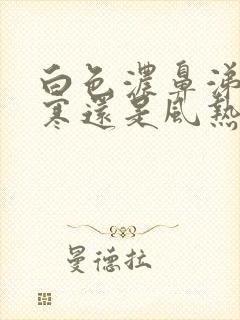 白色濃鼻涕
寒還是風熱
曼德拉